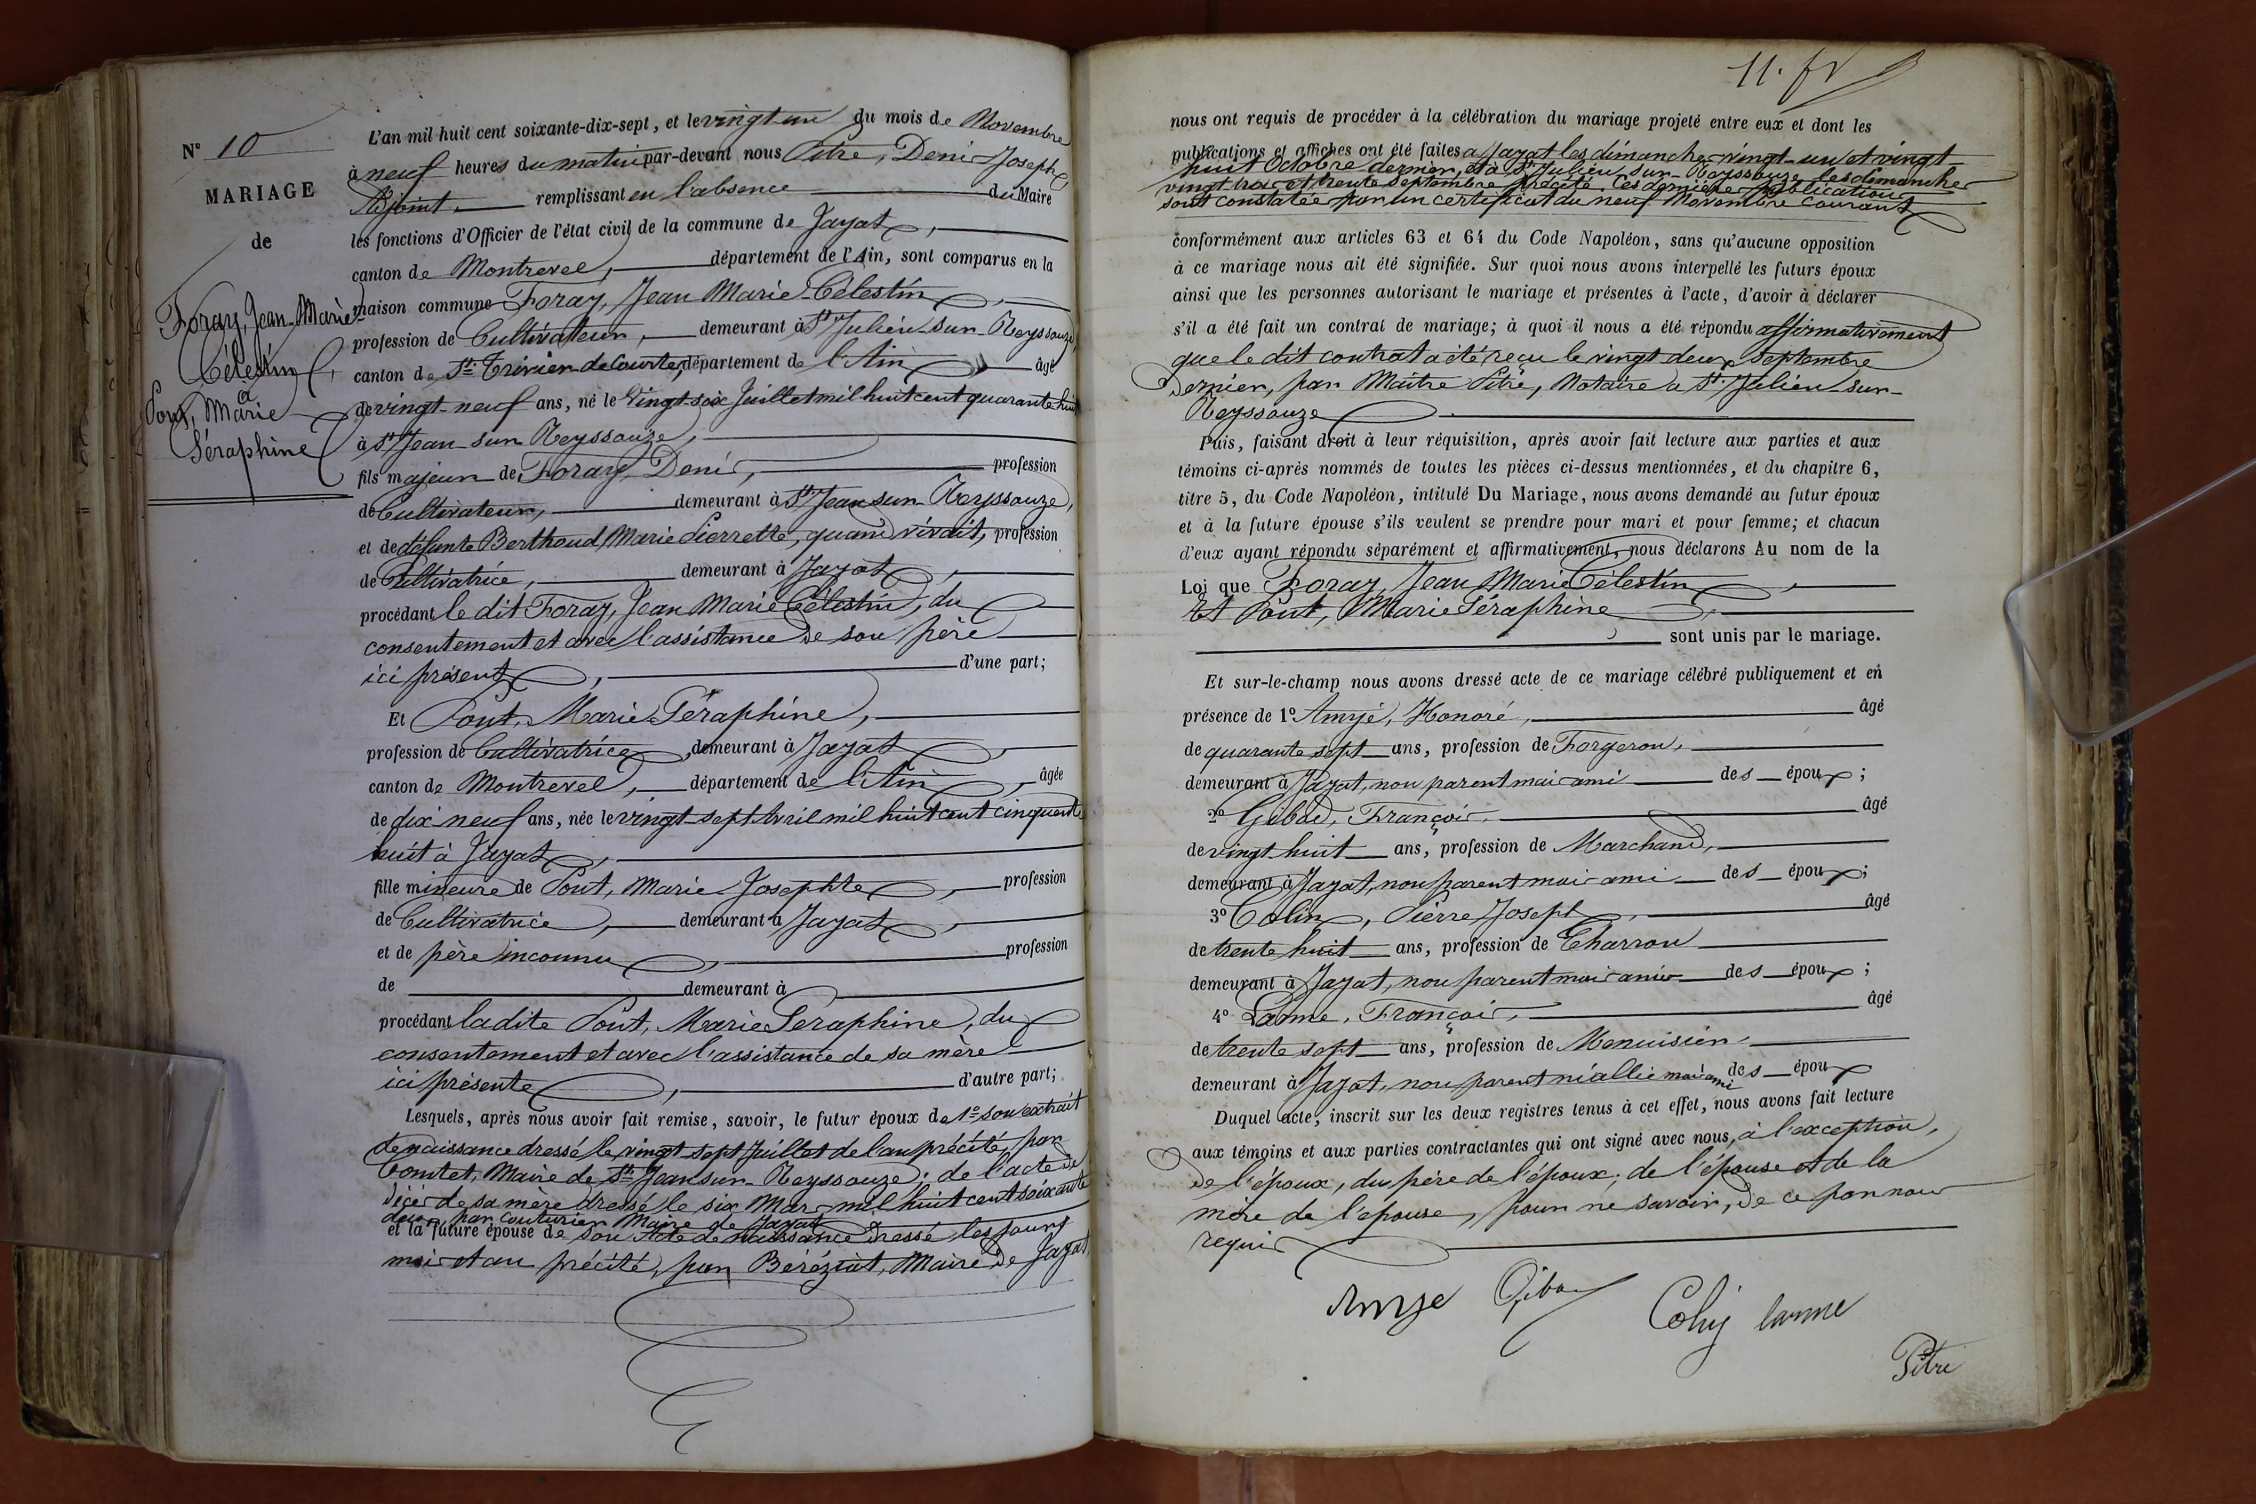 N° 10
MARIAGE
de
Foray, Jean-Marie
Célestin,
et
Pont, Marie
Séraphine
L'an mil huit cent soixante-dix-sept, et le vingt-un du mois de Novembre
à neuf heures du matin par-devant nous Pitre, Denis Joseph,
Adjoint remplissant en l'absence du Maire
les fonctions d'Officier de l'état civil de la commune de Jayat,
canton de Montrevel, département de l'Ain, sont comparus en la
maison commune Foray, Jean Marie-Célestin,
profession de Cultivateur, demeurant à St Julien-sur-Reyssouze,
canton de St Trivier-de-Courtes, département de l'Ain âgé
de vingt-neuf ans, né le vingt-six Juillet mil huit cent quarante huit
à St Jean-sur-Reyssouze,
fils majeur de Foray, Denis, profession
de Cultivateur, demeurant à St Jean-sur-Reyssouze,
et de défunte Berthoud, Marie Pierrette, quand vivait, profession
de Cultivatrice, demeurant à Jayat,
procédant le dit Foray, Jean Marie Célestin, du
consentement et avec l'assistance de son père
ici présent, d'une part;
Et Pont, Marie-Séraphine,
profession de Cultivatrice, demeurant à Jayat,
canton de Montrevel, département de l'Ain, âgée
de dix neuf ans, née le vingt-sept Avril mil huit cent cinquante
huit à Jayat,
fille mineure de Pont, Marie Josephte, profession
de Cultivatrice, demeurant à Jayat,
et de père inconnu, profession
de demeurant à
procédant la dite Pont, Marie Séraphine, du
consentement et avec l'assistance de sa mère
ici présente, d'autre part;
Lesquels, après nous avoir fait remise, savoir, le futur époux de 1° son extrait
de naissance dressé le vingt-sept Juillet de l'an précité, par
Comtet, Maire de St Jean-sur-Reyssouze; de l'acte de
décès de sa mère dressé le six Mars mil huit cent soixante
deux par Couturier Maire de Jayat
et la future épouse de son Acte de naissance dressé les jours
mois et an précité, par Béréziat, Maire de Jayat
11. fr
nous ont requis de procéder à la célébration du mariage projeté entre eux et dont les
publications et affiches ont été faites à Jayat les dimanches vingt-un et vingt-
huit Octobre dernier, et à St Julien-sur-Reyssouze les dimanches
vingt trois et trente septembre précité. Ces dernières publications
sont constatées par un certificat du neuf Novembre courant
conformément aux articles 63 et 64 du Code Napoléon, sans qu'aucune opposition
à ce mariage nous ait été signifiée. Sur quoi nous avons interpellé les futurs époux
ainsi que les personnes autorisant le mariage et présentes à l'acte, d'avoir à déclarer
s'il a été fait un contrat de mariage; à quoi il nous a été répondu affirmativement
que le dit contrat a été reçu le vingt deux septembre
dernier, par Maître Pitre, Notaire à St Julien-sur-
Reyssouze
Puis, faisant droit à leur réquisition, après avoir fait lecture aux parties et aux
témoins ci-après nommés de toutes les pièces ci-dessus mentionnées, et du chapitre 6,
titre 5, du Code Napoléon, intitulé Du Mariage, nous avons demandé au futur époux
et à la future épouse s'ils veulent se prendre pour mari et pour femme; et chacun
d'eux ayant répondu séparément et affirmativement, nous déclarons Au nom de la
Loi que Foray, Jean Marie Célestin,
Et Pont, Marie Séraphine
sont unis par le mariage.
Et sur-le-champ nous avons dressé acte de ce mariage célébré publiquement et en
présence de 1° Amyé, Honoré, âgé
de quarante sept ans, profession de Forgeron,
demeurant à Jayat, non parent mais ami des époux;
2° Gibad, François, âgé
de vingt-huit ans, profession de Marchand,
demeurant à Jayat, non parent mais ami des époux;
3° Colin, Pierre Joseph, âgé
de trente huit ans, profession de Charron
demeurant à Jayat, non parent mais ami des époux;
4° Lanme, François, âgé
de trente sept ans, profession de Menuisier,
demeurant à Jayat, non parent ni allié mais ami des époux
Duquel acte, inscrit sur les deux registres tenus à cet effet, nous avons fait lecture
aux témoins et aux parties contractantes qui ont signé avec nous, à l'exception,
de l'époux, du père de l'époux; de l'épouse et de la
mère de l'épouse, pour ne savoir, de ce par nous
requis
Amye Giba Colin lanme
Pitre